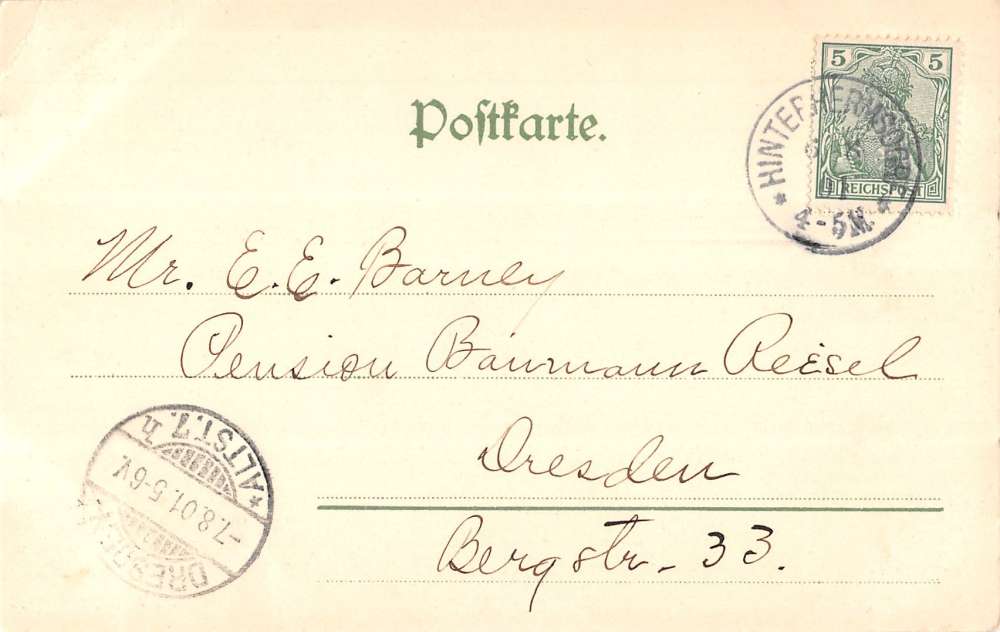 Postkarte.
5 5
REICHSPOST
HINTERHERMSDORF
4-5N.
Mr. E. E. Barney
Pension Baumann Reisel
Dresden
Bergstr. 33.
DRESDEN
-7.8.01.5-6V.
*ALTST.7.h